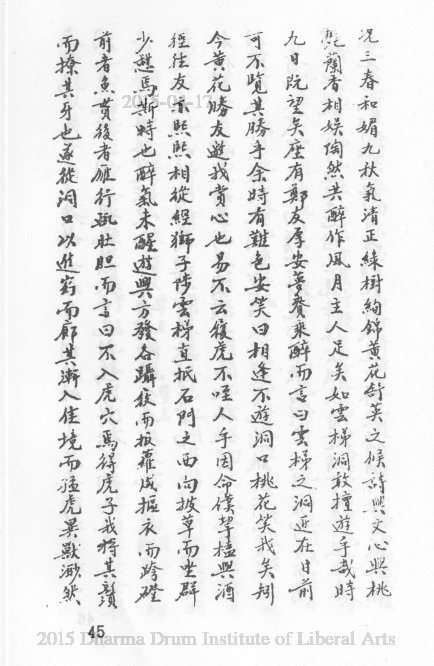 況三春和媚九秋氣清正綠樹絢錦黃花舒英之候詩興文心與桃
蘭香相娛陶然共醉作風月主人足矣如雲梯洞敢擅遊乎哉時
九日既望矣座有鄭友厚安夢賚乘醉而言曰雲梯之洞近在目前
可不覽其勝乎余時有難色安笑曰相逢不遊洞口桃花笑我矣矧
今黃花勝友邀我賞心也易不云履虎不咥人乎因命僕挈榼與酒
徑往友亦熙熙相從經獅子陟雲梯直抵石門之西向披草而坐群
少憇焉斯時也醉氣未醒遊興方發各躡紋而扳蘿或摳衣而跨磴
前者魚貫後者雁行孤壯胆而言曰不入虎穴焉得虎子我將其鬚
而撩其牙也遂從洞口以進窈而廓其漸入佳境而猛虎異獸渺然
2015-01-17
45
2015 Dharma Drum Institute of Liberal Arts